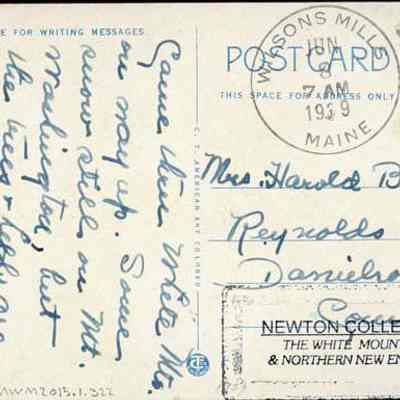 E FOR WRITING MESSAGES.
Came thru White Mts.
on way up. Some
snow still on Mt.
Washington, but
the trees &
are
C. T. AMERICAN ART COLORED
POSTCARD
THIS SPACE FOR ADDRESS ONLY
WILSONS MILLS
JUN
8
7 AM
1939
MAINE
Mrs. Harold B
Reynolds
Danielso
Conn
NEWTON COLLE
THE WHITE MOUNT
& NORTHERN NEW EN
MWM2015.1.322